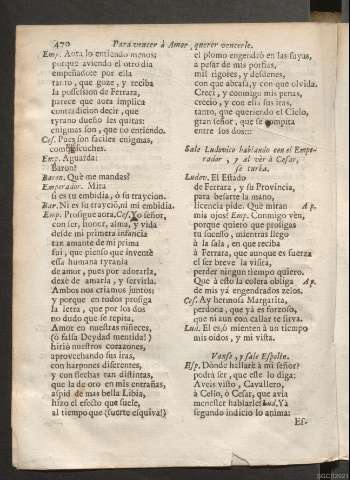 470 Para vencer à Amor, querer vencerle.
Emp. Aora lo entiendo menos;
porque aviendo el otro dia
empeñadote por ella
tanto, que goze, y reciba
la possession de Ferrara,
parece que aora implica
contradicion decir, que
tyrano dueño les quitas:
enigmas son, que no entiendo.
Ces. Pues son faciles enigmas,
como escuches.
Emp. Aguarda:
Baron?
Baron. Què me mandas?
Emperador. Mira
si es tu embidia, ò su traycion.
Bar. Ni es su traycion, ni mi embidia.
Emp. Prosigue aora. Ces. Yo señor,
con ser, honor, alma, y vida
desde mi primera infancia
tan amante de mi prima
fui, que pienso que inventè
essa humana tyrania
de amor, pues por adorarla,
dexè de amarla, y servirla.
Ambos nos criamos juntos;
y porque en todos prosiga
la letra, que por los dos
no dudo que se repita,
Amor en nuestras niñeces,
(ò falsa Deydad mentida!)
hiriò nuestros corazones,
aprovechando sus iras,
con harpones diferentes,
y con flechas tan distintas,
que la de oro en mis entrañas,
aspid de mas bella Libia,
hizo el efecto que suele,
al tiempo que (suerte esquiva!)
el plomo engendrò en las suyas,
a pesar de mis porfias,
mil rigores, y desdenes,
con que abrasa, y con que olvida.
Crecì, y conmigo mis penas,
creciò, y con ella sus iras,
tanto, que queriendo el Cielo,
gran señor, que se rompita
entre los dos:::
Sale Ludovico hablando con el Emperador,
y al vèr à Cesar,
se turba.
Ludov. El Estado
de Ferrara, y su Provincia,
para besarte la mano,
licencia pide. Què miran Ap.
mis ojos! Emp. Conmigo vèn,
porque quiero que prosigas
tu sucesso, mientras llego
à la sala, en que reciba
à Ferrara, que aunque es fuerza
el ser breve la visita,
perder ningun tiempo quiero.
Que à esto la colera obliga Ap.
de mis yà engendrados zelos.
Ces. Ay hermosa Margarita,
perdona, que yà es forzoso,
que ni aun con callar te sirva.
Lud. El es, ò mienten à un tiempo
mis oidos, y mi vista.
Vanse, y sale Espolin.
Esp. Dònde hallarè à mi señor?
podrà ser, que este lo diga:
Aveis visto, Cavallero,
à Celio, ò Cesar, que avia
menester hablarle? Lud. Yà
segundo indicio lo anima:
Es-